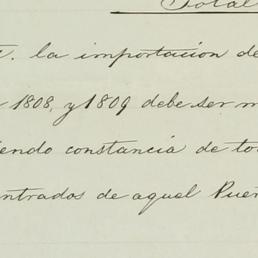 Total
la importacion de
1808, y 1809 debe ser m
iendo constancia de to
ntrados de aquel Puer